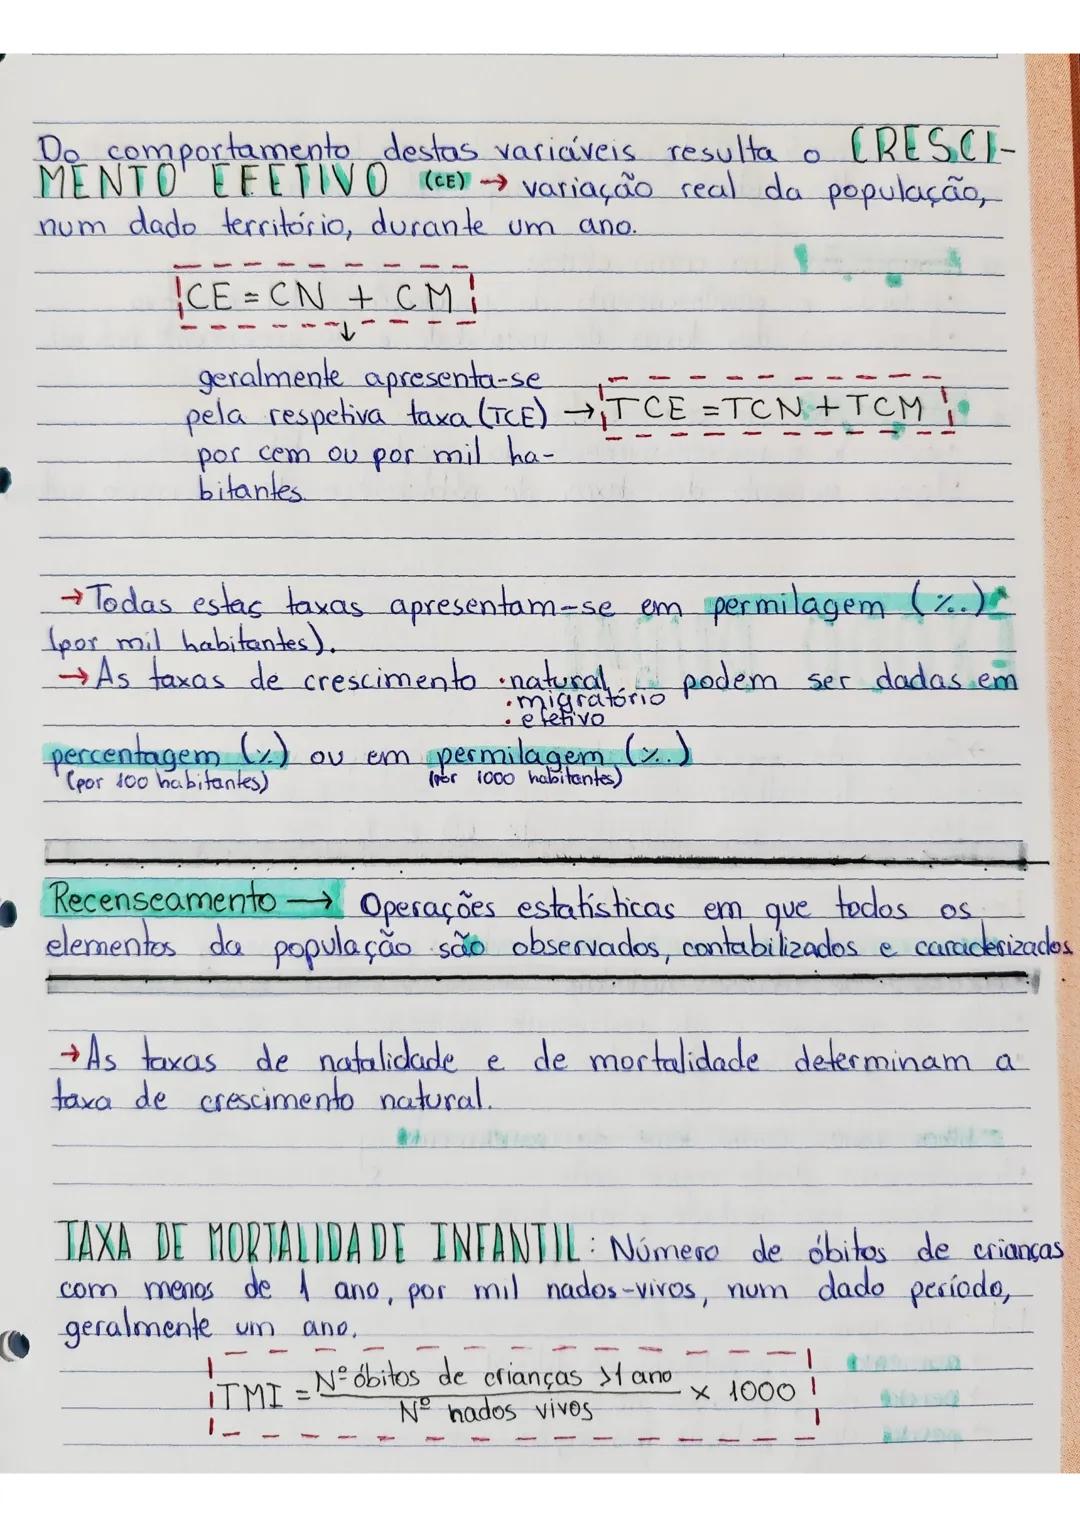 Do comportamento destas variáveis resulta o CRESCI-
MENTO EFETIVO (CE) → variação real da população,
num dado território, durante um ano.
CE = CN + CM
↓
geralmente apresenta-se
pela respetiva taxa (TCE) → TCE = TCN + TCM
por cem ou por mil ha-
bitantes.
→ Todas estas taxas apresentam-se em permilagem (‰)
(por mil habitantes).
→ As taxas de crescimento • natural, podem ser dadas em
• migratório
• efetivo
percentagem (%) ou em permilagem (‰)
(por 100 habitantes) (por 1000 habitantes)
Recenseamento → Operações estatísticas em que todos os
elementos da população são observados, contabilizados e caracterizados.
→ As taxas de natalidade e de mortalidade determinam a
taxa de crescimento natural.
TAXA DE MORTALIDADE INFANTIL: Número de óbitos de crianças
com menos de 1 ano, por mil nados-vivos, num dado período,
geralmente um ano.
TMI = Nº óbitos de crianças >1 ano x 1000
Nº nados vivos